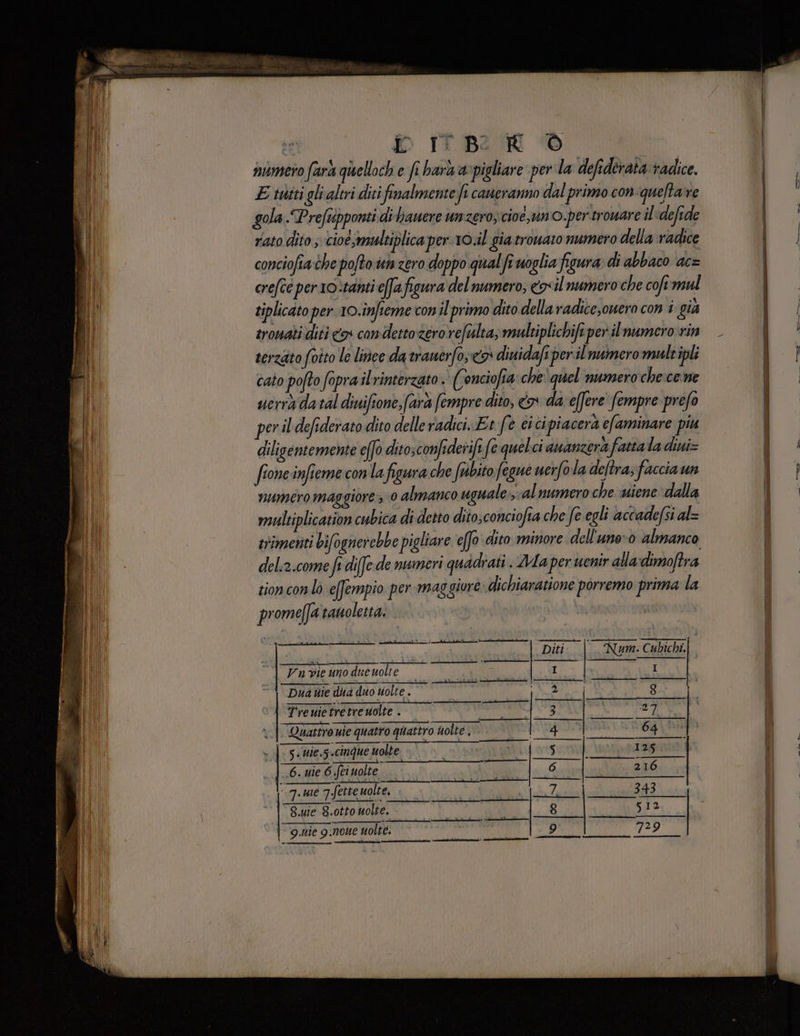 LIBRO
numero ſarà quelloch e ſi harà a pigliare per la deſiderata radice.
E tutti gli altri diti finalmente ſi caueranno dal primo con queſta re
gola. Preſupponti di hauere un zero, cioè, un 0. per trouare il deſide
rato dito, cioè, multiplica per 10. il gia trouato numero della radice
concioſia che poſto un zero doppo qual ſi uoglia figura di abbaco ac=
creſce per 10. tanti eſſa figura del numero, & il numero che coſi mul
tiplicato per 10. inſieme con il primo dito della radice, ouero con i gia
trouati diti & con detto zero reſulta, multiplichiſi per il numero rin
terzato ſotto le linee da trauerſo, & diuidaſi per il numero multipli
cato poſto ſopra il rinterzato. Concioſia che quel numero che ce ne
uerrà da tal diuiſione, ſarà ſempre dito, & da eſſere ſempre preſo
per il deſiderato dito delle radici. Et ſe ei ci piacerà eſaminare piu
diligentemente eſſo dito, conſideriſi ſe quel ci auanzerà fatta la diui=
ſione inſieme con la figura che ſubito ſegue uerſo la deſtra, faccia un
numero maggiore, o almanco uguale, al numero che uiene dalla
multiplication cubica di detto dito, concioſia che ſe egli accadeſſi al=
trimenti biſognerebbe pigliare eſſo dito minore dell'uno o almanco
del. 2. come ſi diſſe de numeri quadrati. Ma per uenir alla dimoſtra
tion con lo eſſempio per maggiore dichiaratione porremo prima la
promeſſa tauoletta.
Diti Num. Cubichi.
Vn vie uno due uolte 1 1
Dua uie dua duo uolte. 2 8
Tre uie tre tre uolte. 3 27
Quattro uie quatro quattro uolte. 4 64
5. uie. 5. cinque uolte 5 125
6. uie 6. ſei uolte 6 216
7. uie 7. ſette uolte. 7 343
8. uie 8. otto uolte. 8 512
9. uie 9. noue uolte. 9 729